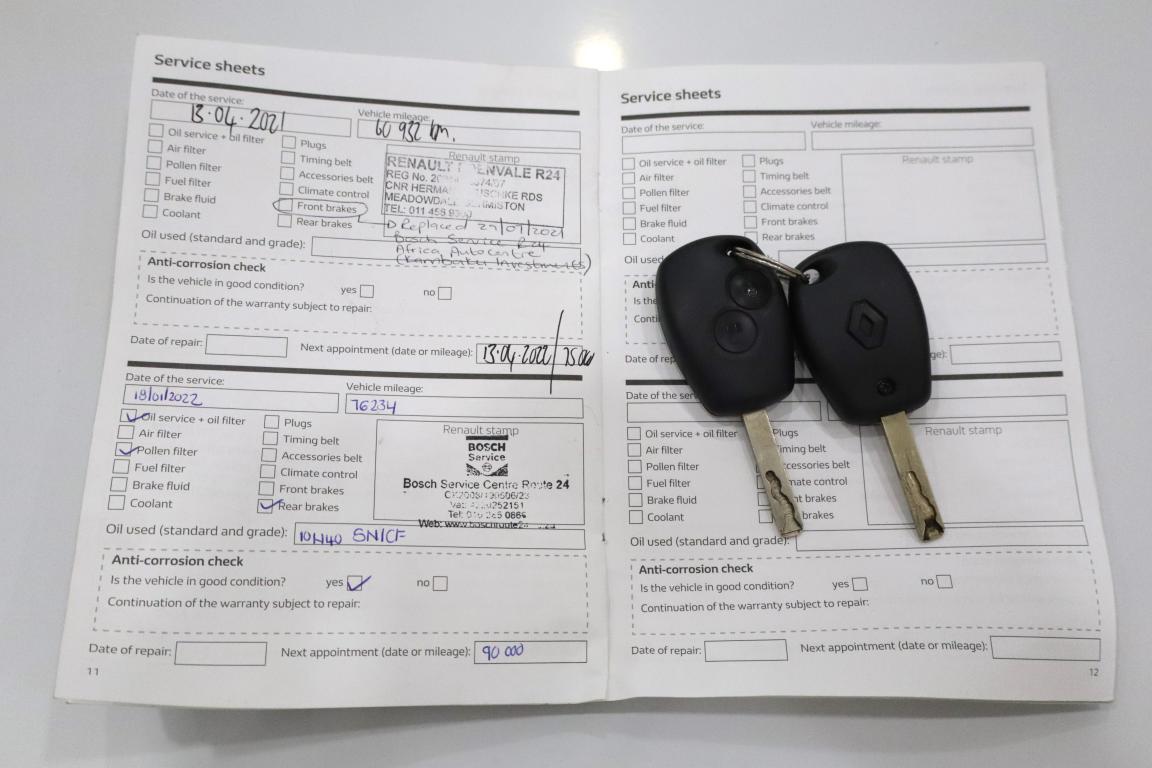 Service sheets
Date of the service:
Vehicle mileage:
13.04.2021
60 932 km.
Oil service + oil filter
Plugs
Air filter
Timing belt
Pollen filter
Accessories belt
Fuel filter
Climate control
Brake fluid
Front brakes
Coolant
Rear brakes
Renault stamp
RENAULT ENVALE R24
REG No.
CNR HERMA RDS
MEADOWDA
TEL: 011 455
Replaced 29/07/2021
Bosch Service R24
Africa Autocentre
Investments)
Oil used (standard and grade):
Anti-corrosion check
Is the vehicle in good condition? yes no
Continuation of the warranty subject to repair:
Date of repair:
Next appointment (date or mileage): 13.04.2022/75000
Date of the service:
Vehicle mileage:
18/01/2022
76234
Oil service + oil filter
Plugs
Air filter
Timing belt
Pollen filter
Accessories belt
Fuel filter
Climate control
Brake fluid
Front brakes
Coolant
Rear brakes
Renault stamp
BOSCH
Service
Bosch Service Centre Route 24
Web: www.boschroute24
Oil used (standard and grade): 10W40 SN/CF
Anti-corrosion check
Is the vehicle in good condition? yes no
Continuation of the warranty subject to repair:
Date of repair:
Next appointment (date or mileage): 90 000
11
Service sheets
Date of the service:
Vehicle mileage:
Oil service + oil filter
Plugs
Air filter
Timing belt
Pollen filter
Accessories belt
Fuel filter
Climate control
Brake fluid
Front brakes
Coolant
Rear brakes
Renault stamp
Oil used
Anti-
Is the
Conti
Date of rep
ge):
Date of the serv
Oil service + oil filter
Plugs
Air filter
Timing belt
Pollen filter
ccessories belt
Fuel filter
mate control
Brake fluid
nt brakes
Coolant
brakes
Renault stamp
Oil used (standard and grade):
Anti-corrosion check
Is the vehicle in good condition? yes no
Continuation of the warranty subject to repair:
Date of repair:
Next appointment (date or mileage):
12